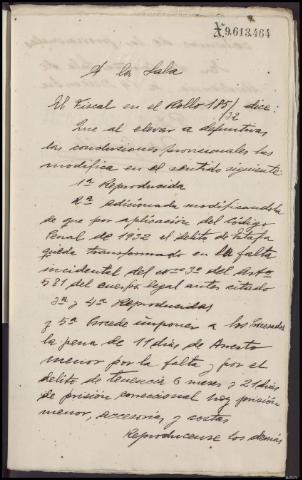 X 9.613.464
A la Sala
El Fiscal en el Rollo 185/32 dice:
Que al elevar a definitivas
las conclusiones provisionales las
modifica en el sentido siguiente
1ª Reproducida
2ª adicionada modificandola
de que por aplicación del Código
Penal de 1932 el delito de estafa
queda transformado en la falta
incidental del nº 3º del Artº
581 del cuerpo legal antes citado
3ª y 4ª Reproducidas
y 5ª Procede imponer a los Procesados
la pena de 11 dias de Arresto
menor por la falta y por el
delito de tenencia 6 meses y 21 dias
de prisión correccional hoy prisión
menor, accesorias y costas
Reproducense las demás